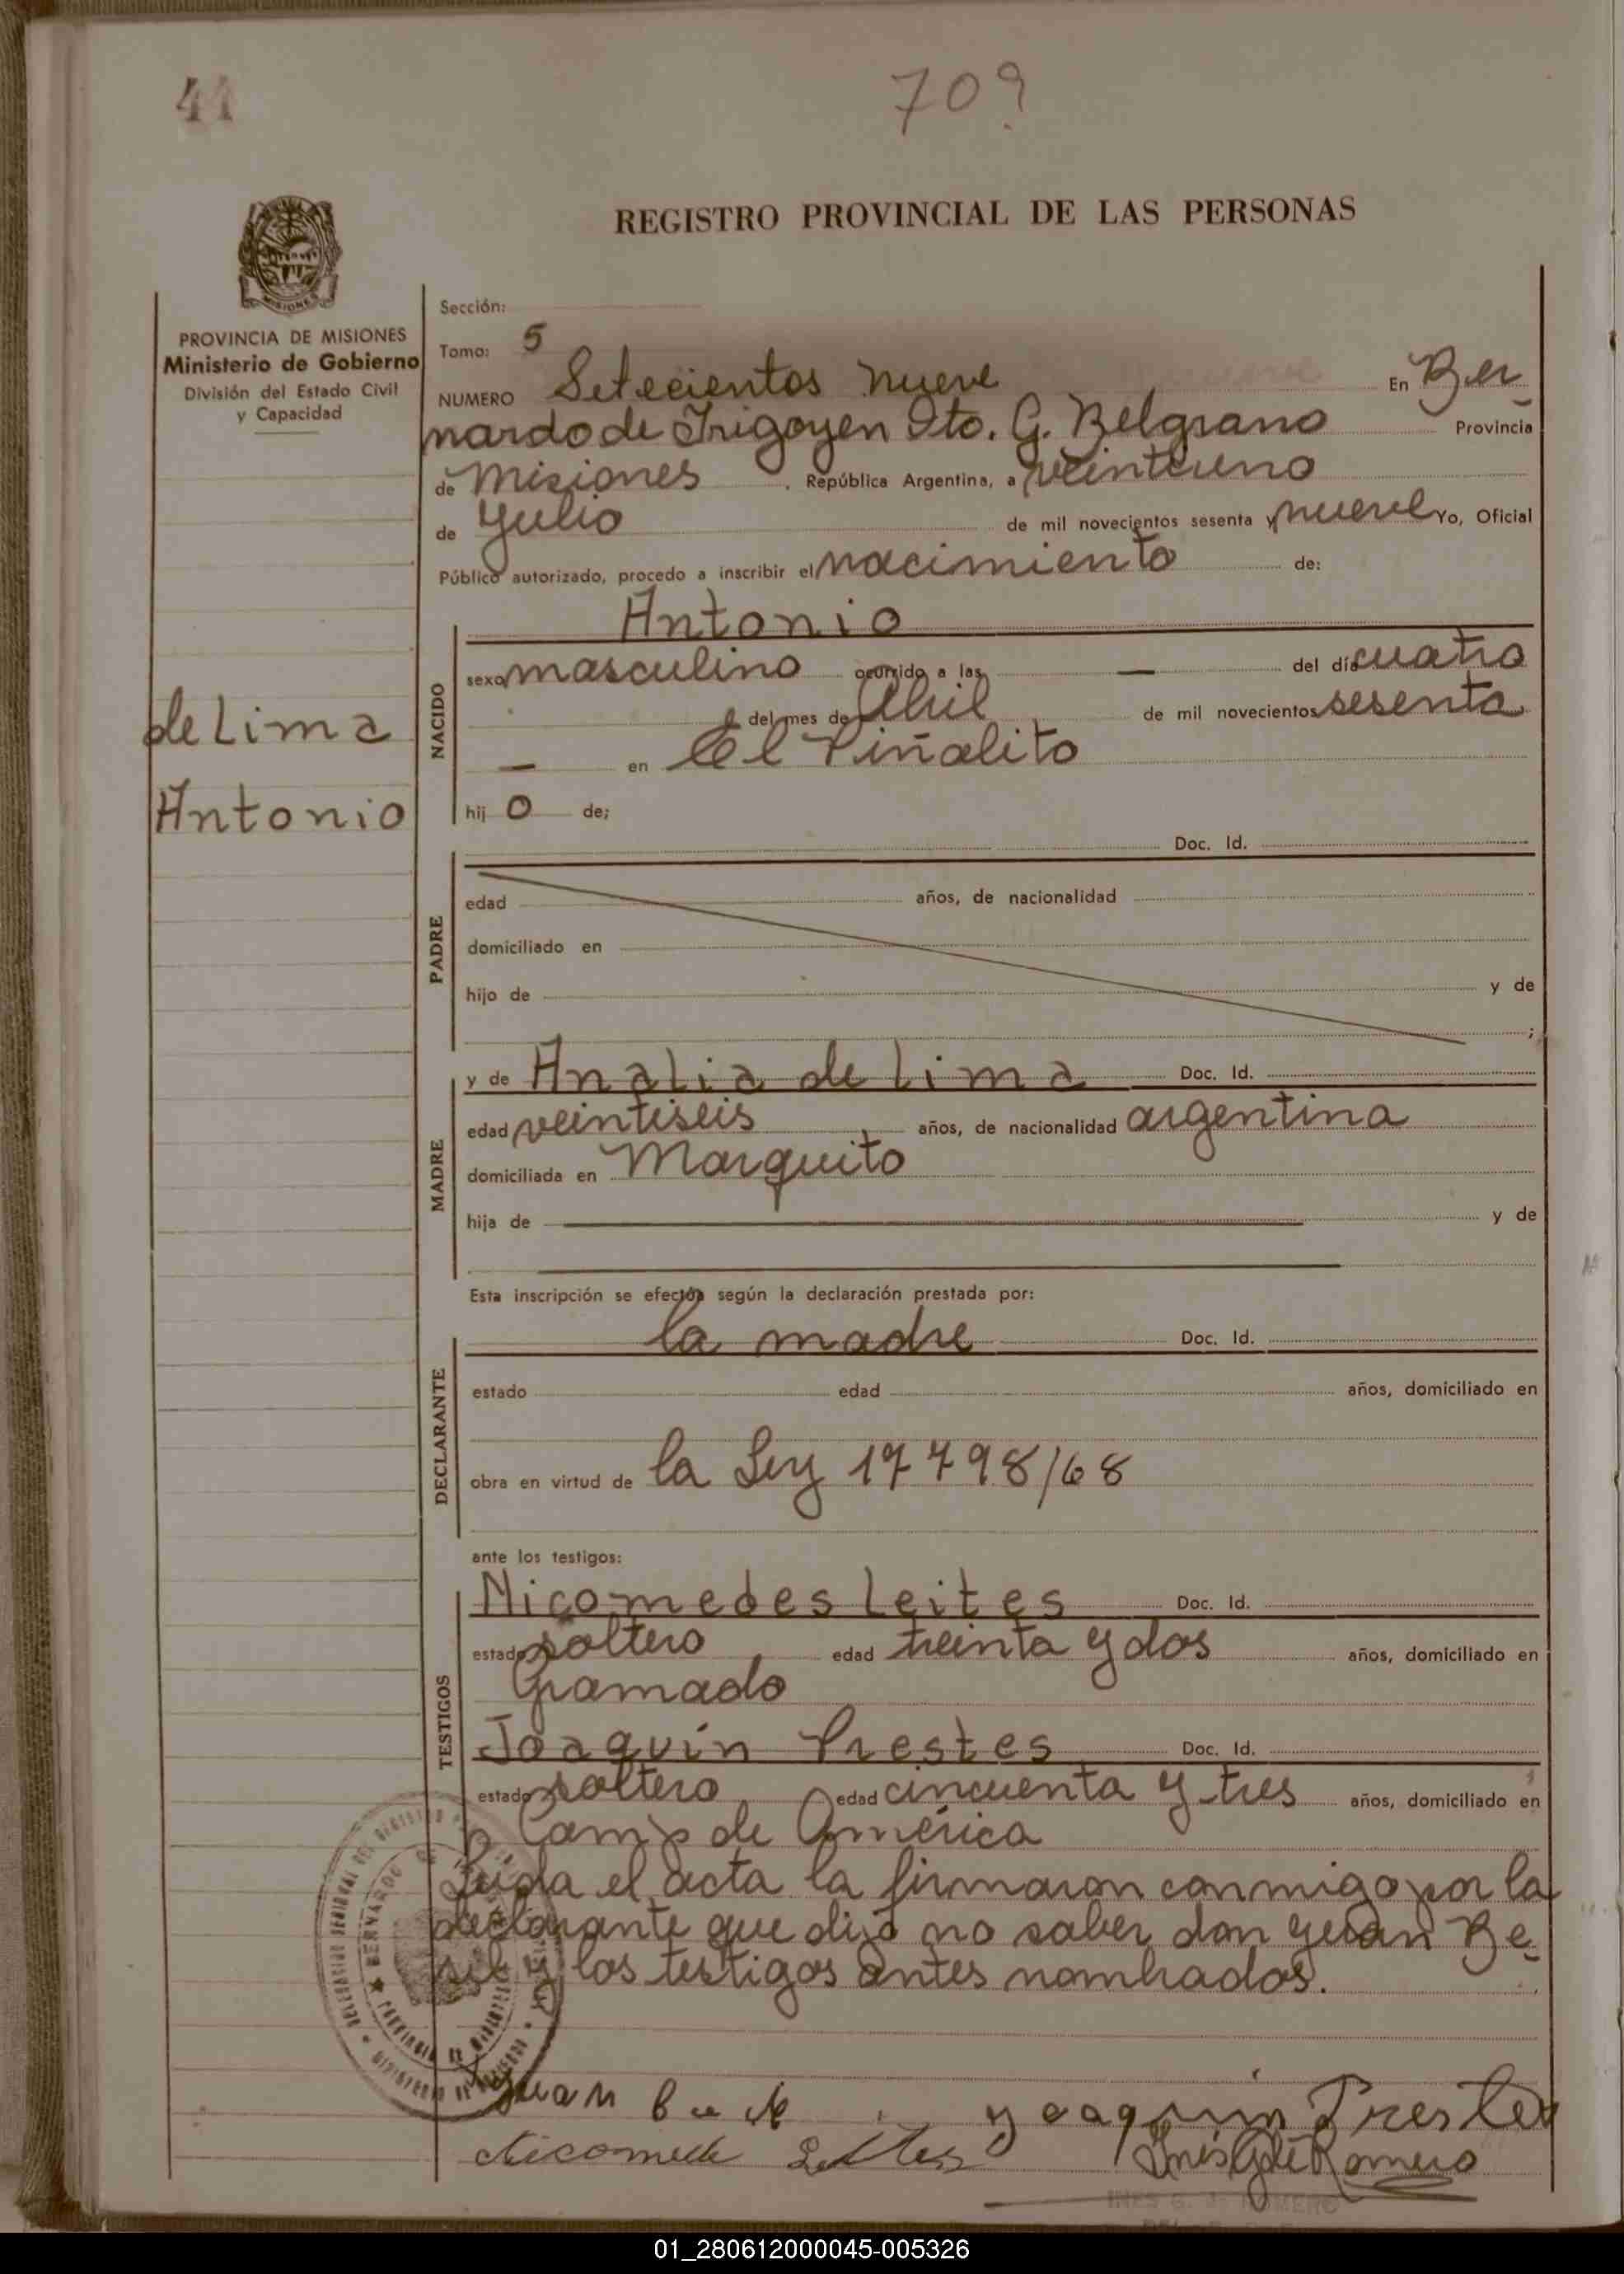 41
709
REGISTRO PROVINCIAL DE LAS PERSONAS
MISIONES
PROVINCIA DE MISIONES
Ministerio de Gobierno
División del Estado Civil
y Capacidad
de Lima
Antonio
Sección:
Tomo: 5
NUMERO Setecientos nueve En Ber
nardo de Irigoyen Dto. G. Belgrano Provincia
de Misiones, República Argentina, a veintiuno
de Julio de mil novecientos sesenta y nueve Yo, Oficial
Público autorizado, procedo a inscribir el nacimiento de:
Antonio
NACIDO
sexo masculino ocurrido a las — del día cuatro
del mes de Abril de mil novecientos sesenta
— en El Piñalito
hij o de;
Doc. Id.
PADRE
edad años, de nacionalidad
domiciliado en
hijo de y de
;
y de Analia de Lima Doc. Id.
MADRE
edad veintiseis años, de nacionalidad argentina
domiciliada en Marquito
hija de y de
Esta inscripción se efectúa según la declaración prestada por:
la madre Doc. Id.
DECLARANTE
estado edad años, domiciliado en
obra en virtud de la Ley 17798/68
ante los testigos:
Nicomedes Leites Doc. Id.
TESTIGOS
estado soltero edad treinta y dos años, domiciliado en
Gramado
Joaquín Prestes Doc. Id.
estado soltero edad cincuenta y tres años, domiciliado en
Camp de América
Leida el acta la firmaron conmigo por la
declarante que dijo no saber don Juan Be
y los testigos antes nombrados.
Juan
Joaquin Prestes
Nicomede Leites
Inés G de Romero
INES G. d. ROMERO
01_280612000045-005326